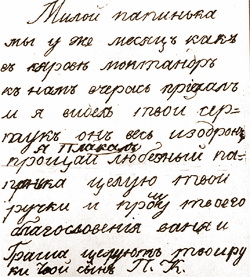 Милой папинька
мы уже месяц какъ
въ
къ намъ вчерась
и я видел твой сер-
тукъ онъ весь изодронъ
я плакалъ
прощай любезный па-
пинька целую твои
ручки и прошу твоего
благословения ваня и
Граша целуютъ твои ру
ки твой сынъ П. К.